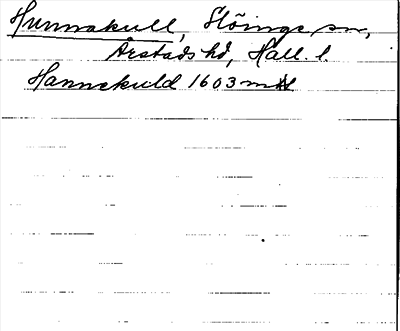 Hunnakull, Slöinge sn,
Årstads hd, Hall. l.
Hannekuld 1603